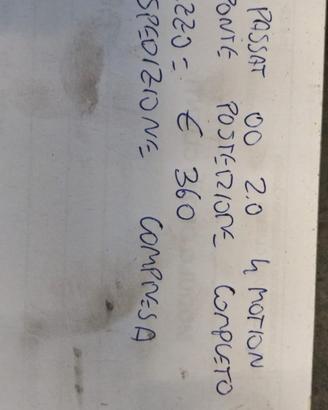 PASSAT 00 2.0 4 MOTION
PONTE POSTERIORE COMPLETO
.220 = € 360
SPEDIZIONE COMPRESA